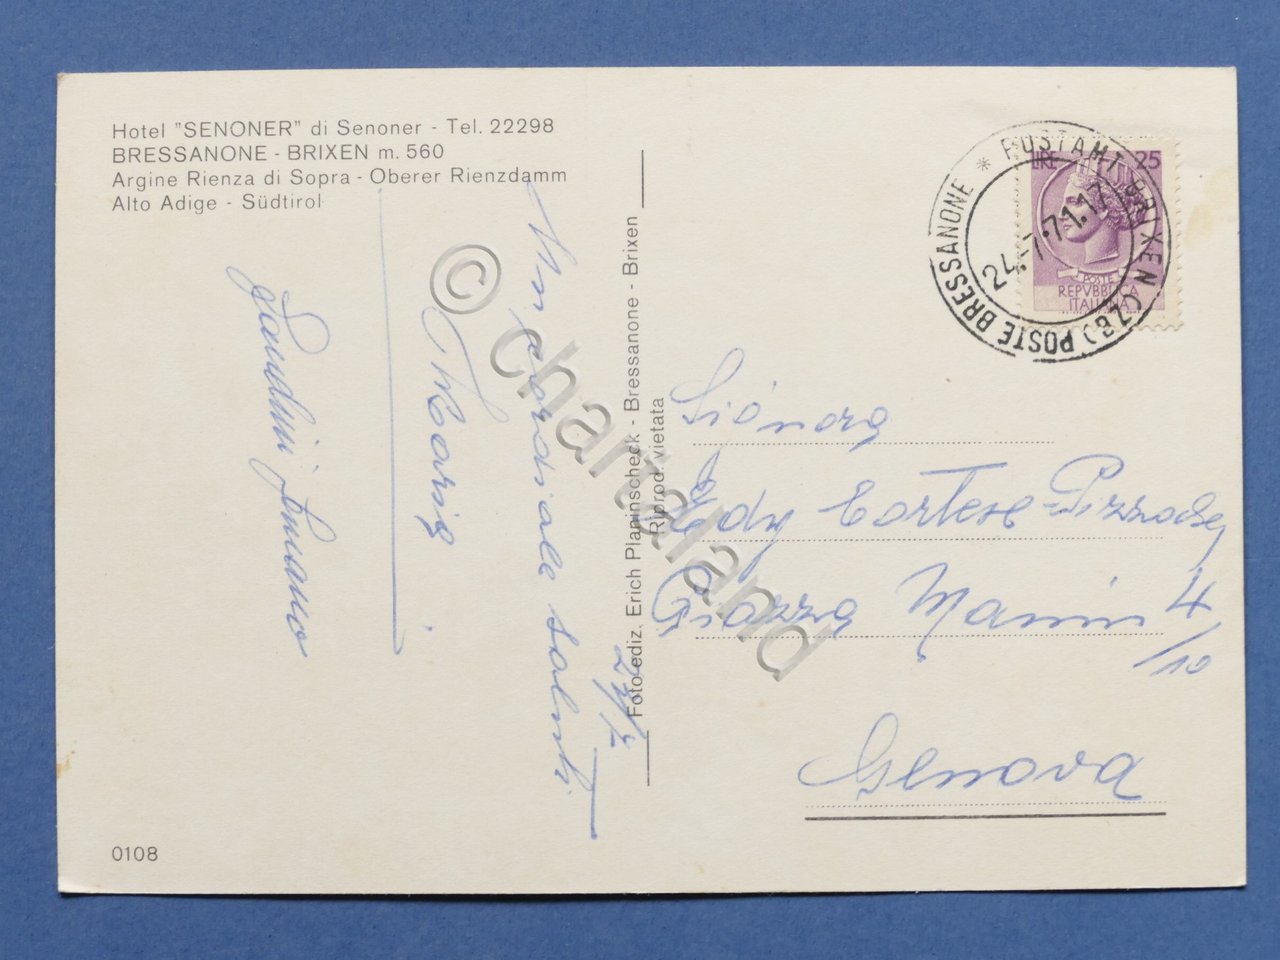 Hotel "SENONER" di Senoner - Tel. 22298
BRESSANONE - BRIXEN m. 560
Argine Rienza di Sopra - Oberer Rienzdamm
Alto Adige - Südtirol
23/7
Un cordiale saluti
Maria
0108
Foto ediz. Erich Planinscheck - Bressanone - Brixen
Riprod. vietata
POSTAMT BRIXEN (ZB) POSTE BRESSANONE *
24.-7.71.17
LIRE 25
POSTE
REPVBBLICA
ITALIANA
Signora
Edy Cortese-
Piazza Manin 4
/10
Genova
© chartaland